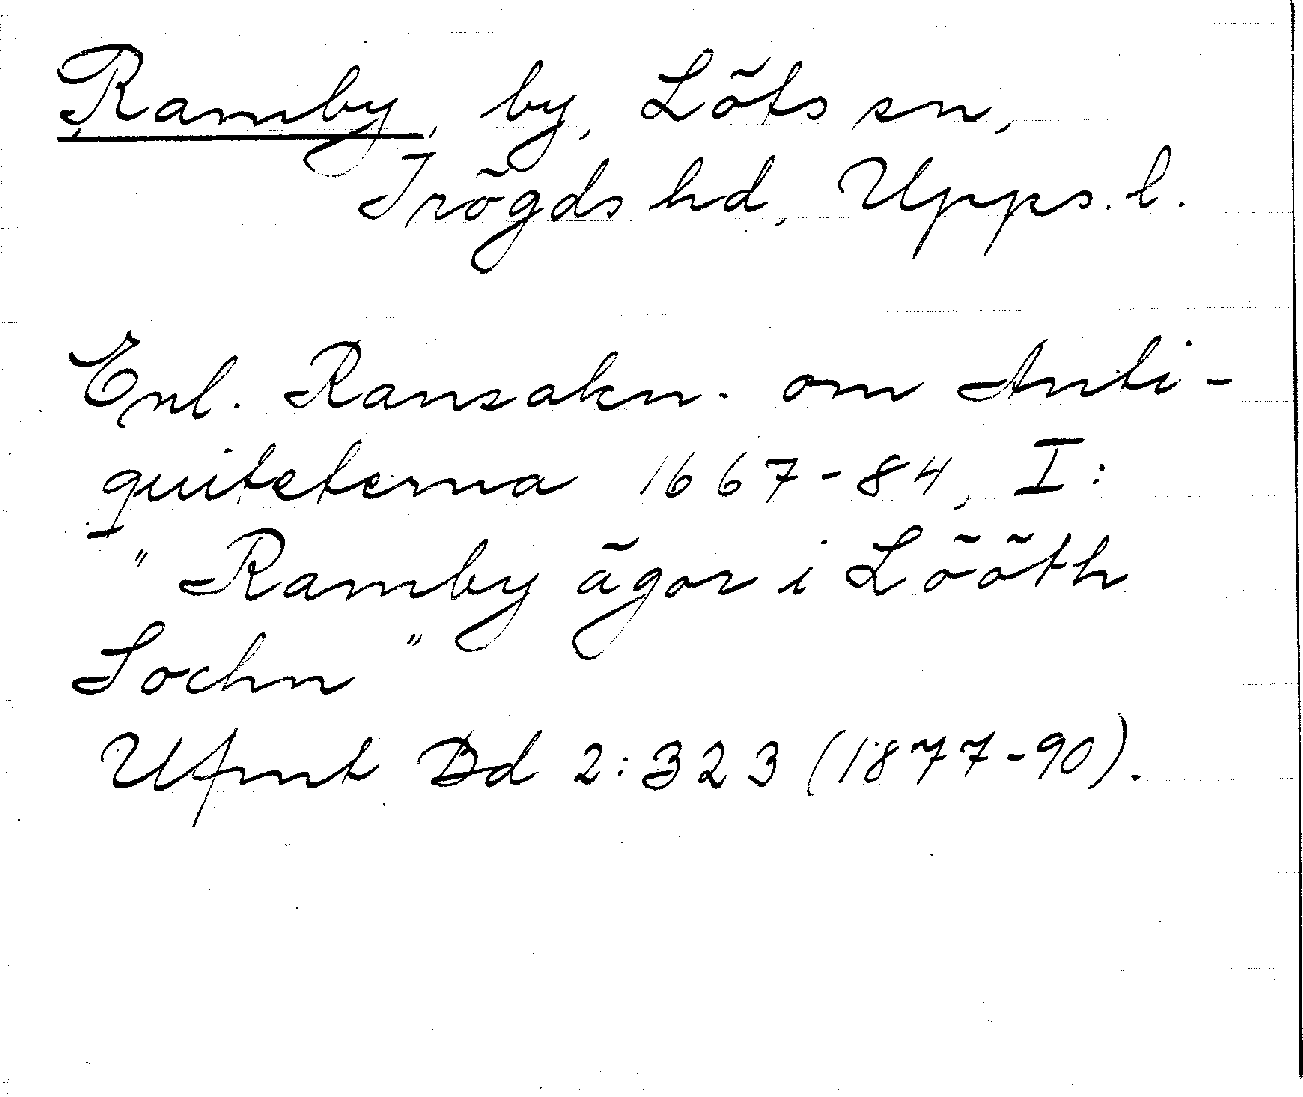 Ramby, by, Löts sn,
Trögds hd, Upps. l.
Enl. Ransakn. om Anti-
quiteterna 1667-84, I:
"Ramby ägor i Lööth
Sochn"
Ufmt Bd 2:323 (1877-90).